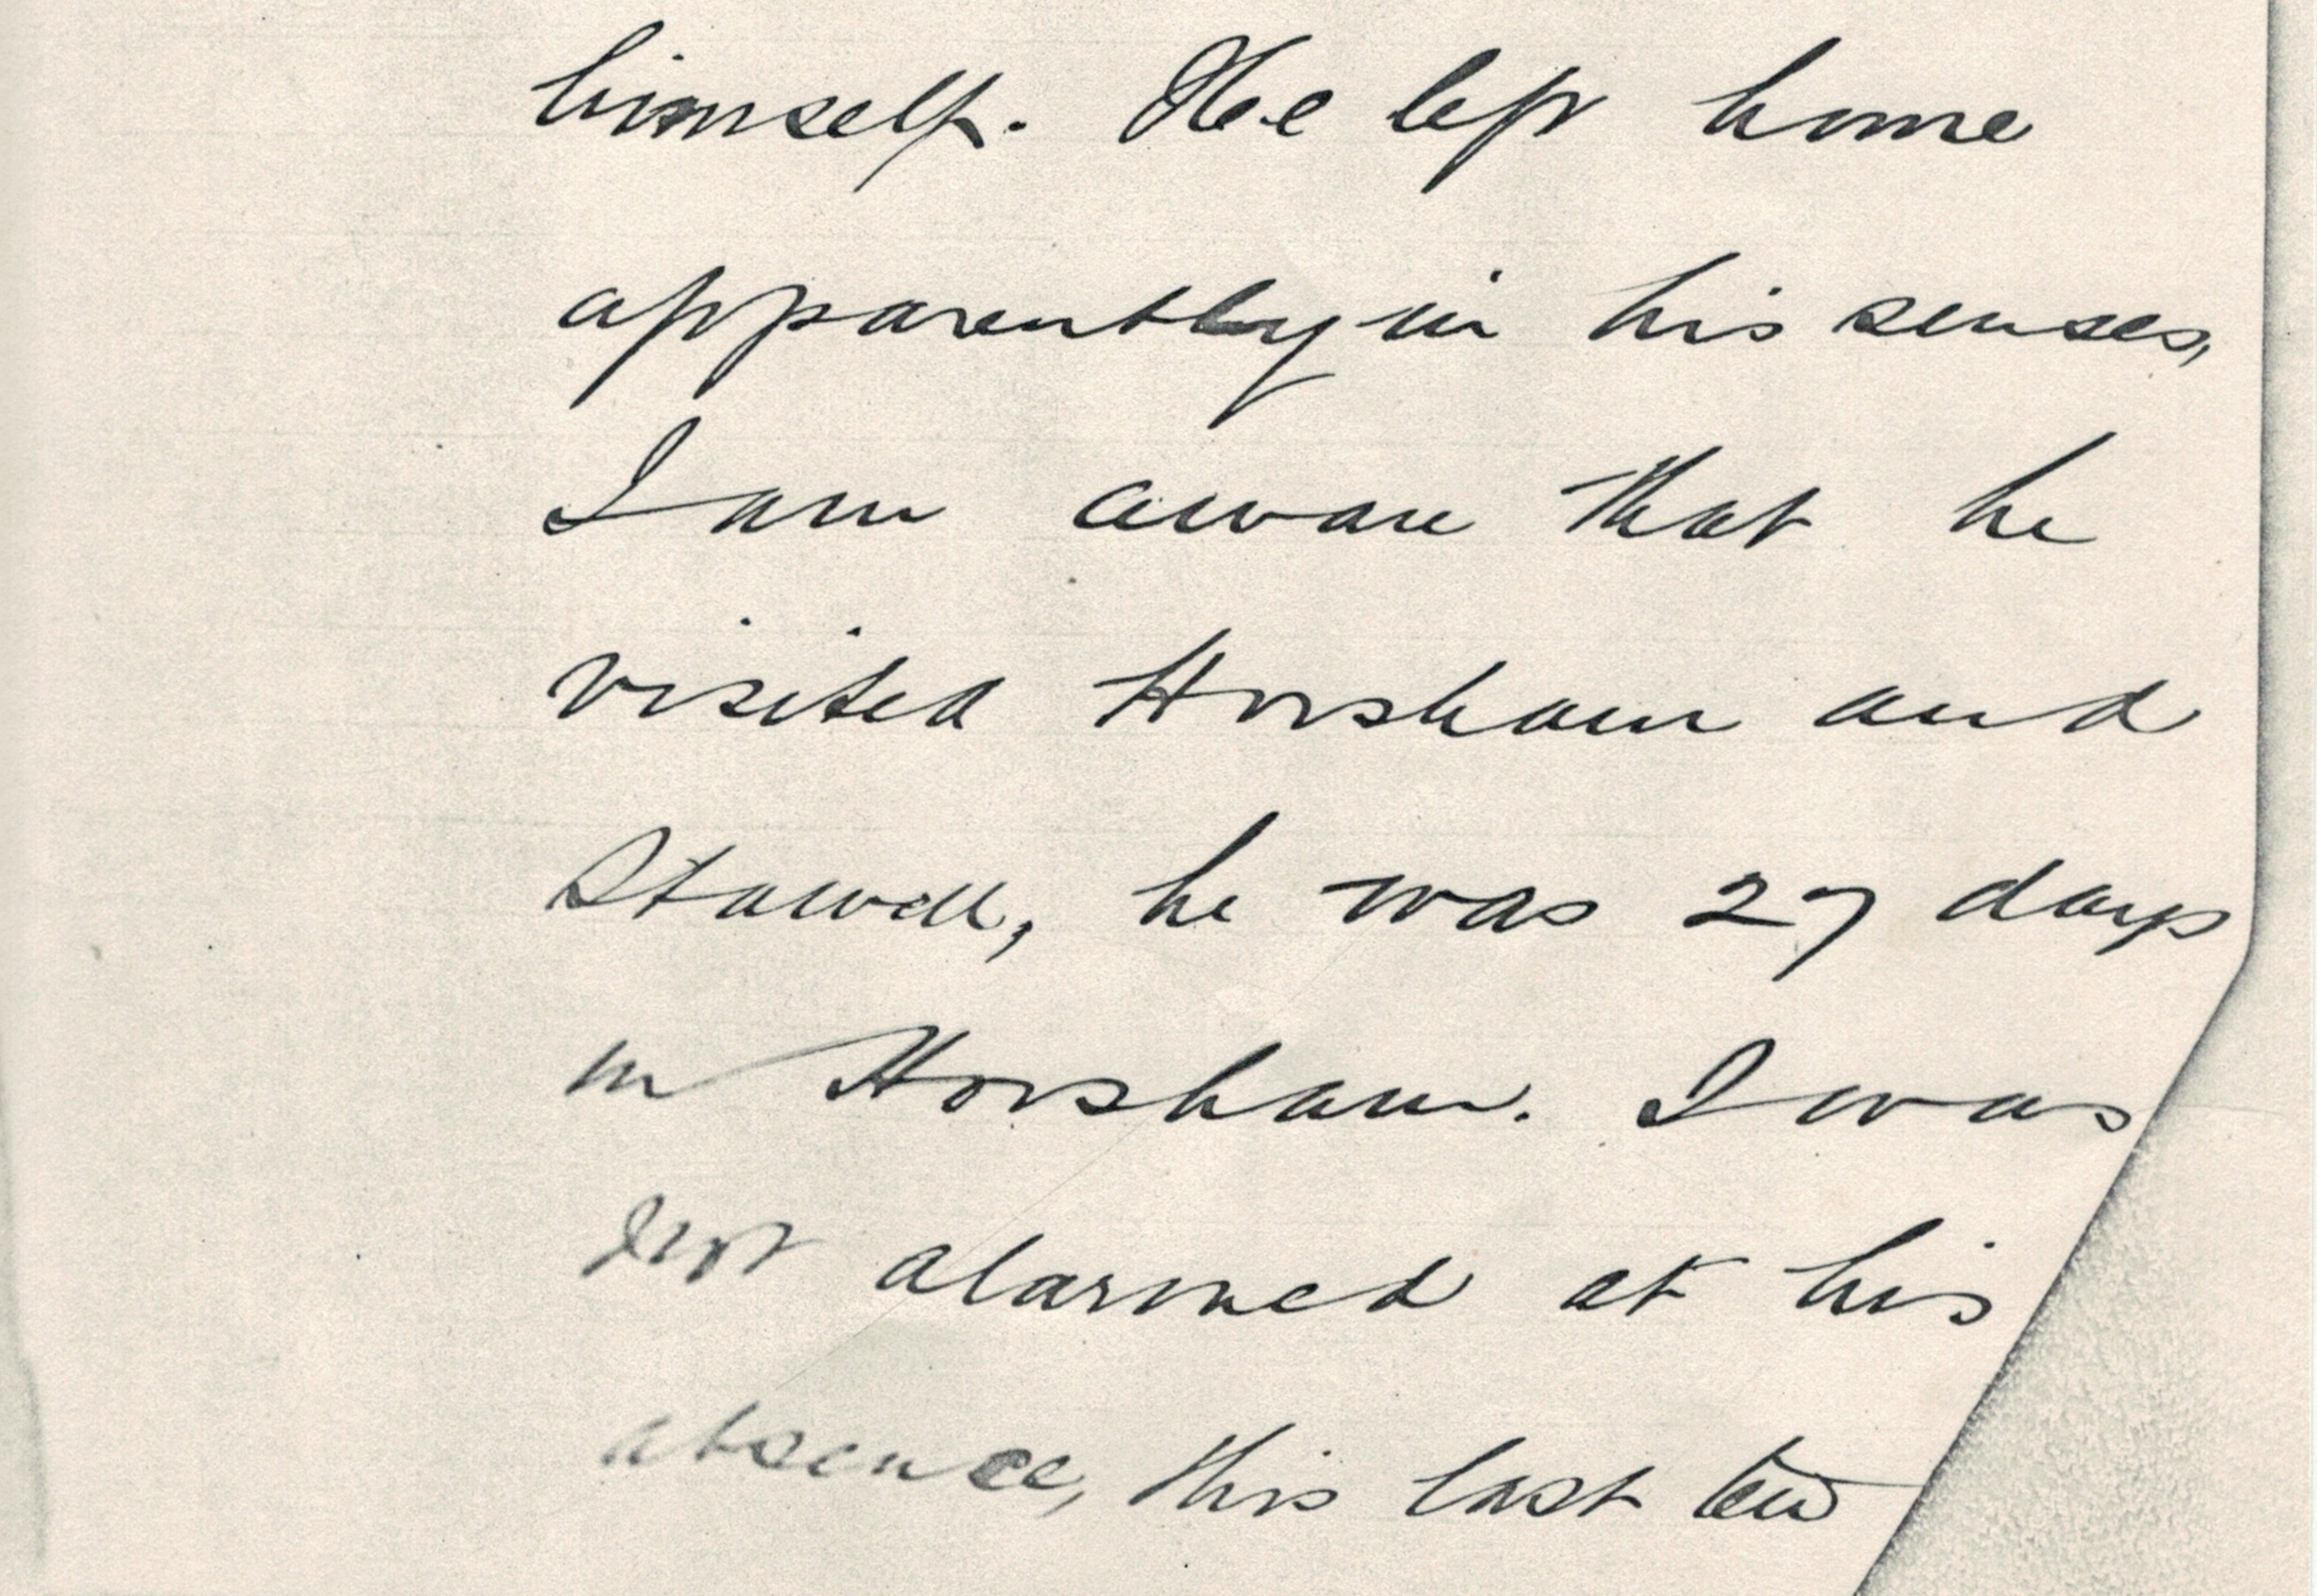 himself. He left home
apparently in his senses,
I am aware that he
visited Horsham and
Stawell, he was 27 days
in Horsham. I was
not alarmed at his
absence, this last